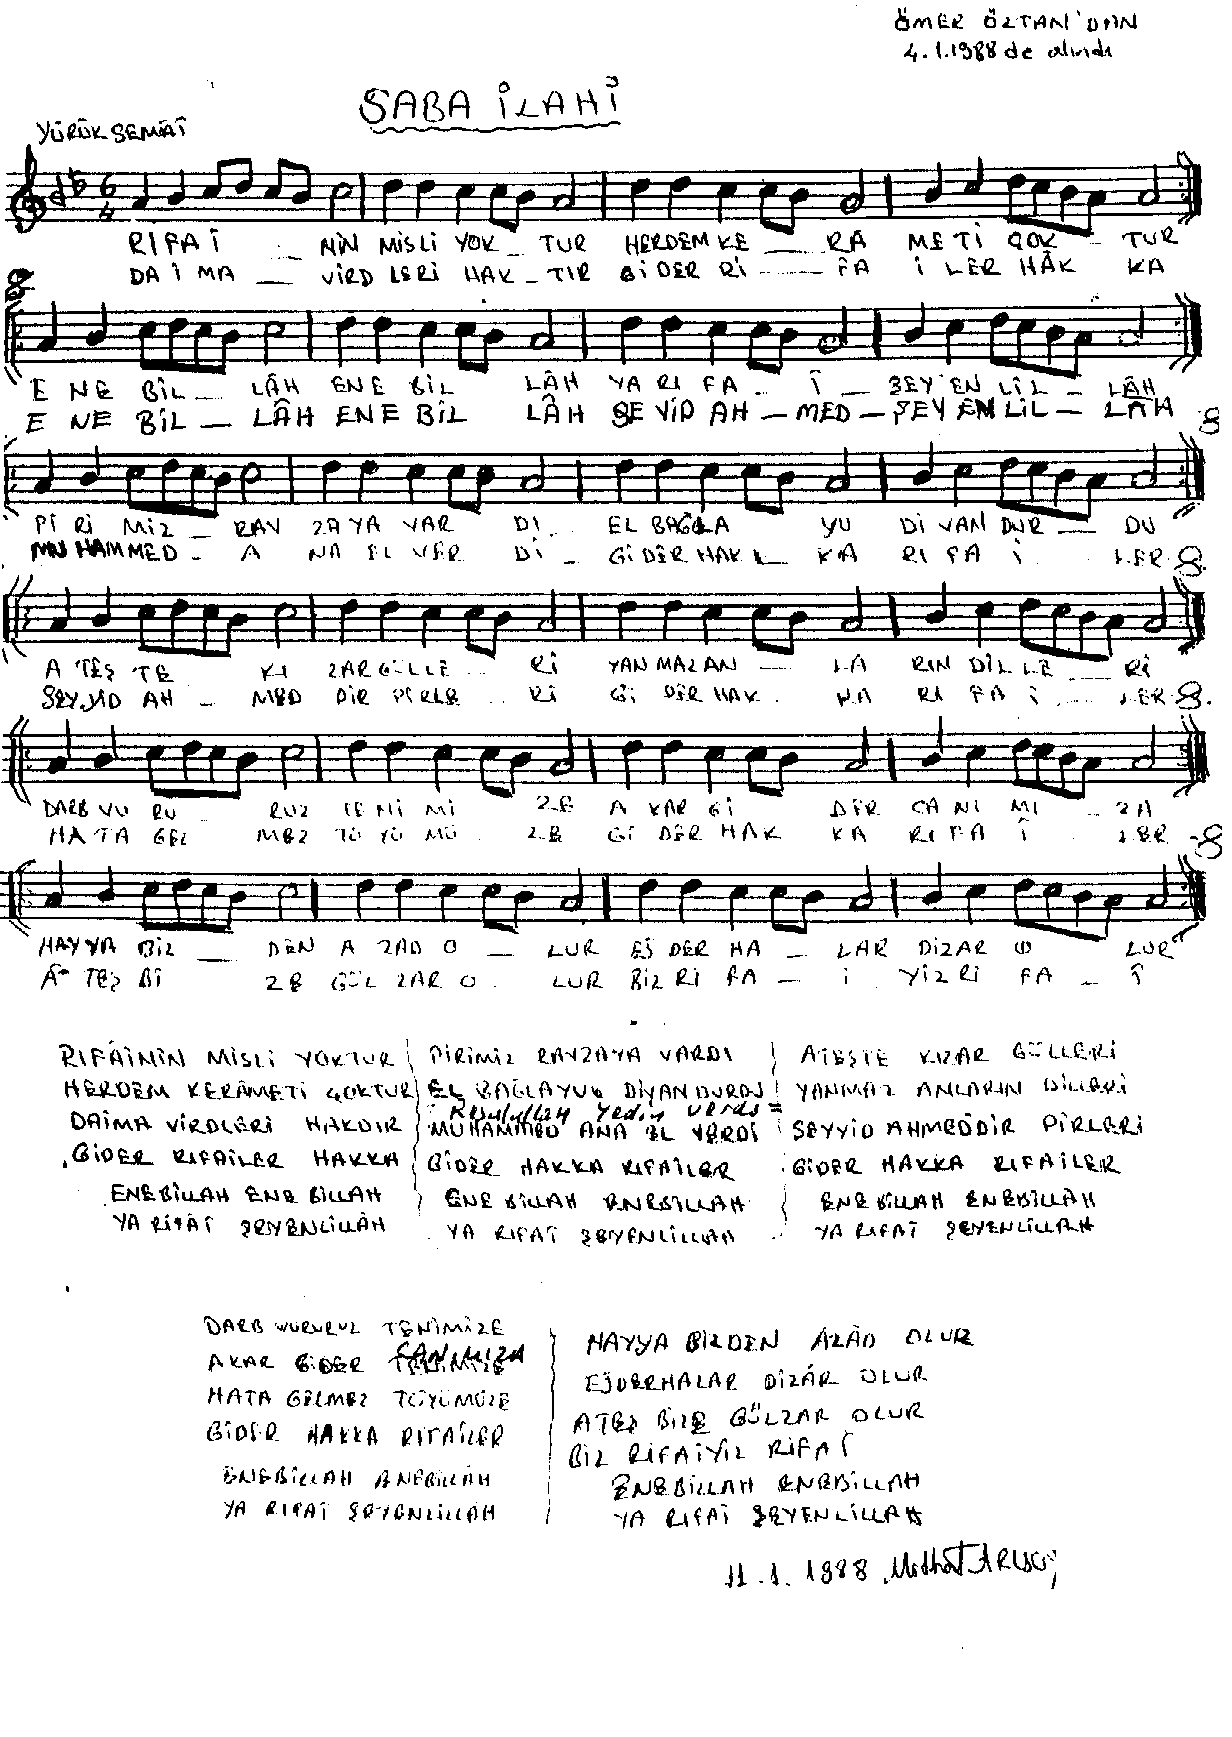 ÖMER ÖZTAN'DAN
4.1.1988 de alındı
SABA İLAHİ
YÜRÜK SEMAİ
6
4
RIFAİ _ NİN MİSLİ YOK _ TUR HERDEM KE _ RA METİ ÇOK _ TUR
DAİMA _ VİRDLERİ HAK _ TIR GİDER Rİ _ FA İLER HAK KA
E NE BİL _ LÂH ENE BİL LÂH YA RIFA _ İ ŞEY'EN LİL _ LÂH
E NE BİL _ LÂH ENE BİL LÂH SEYİD AH _ MED _ ŞEYEN LİL _ LÂH
PİRİ MİZ _ RAV ZAYA VAR DI EL BAĞLA YU DİVAN DUR _ DU
MUHAMMED _ A NA EL VER DI _ GİDER HAK _ KA RIFAİ LER
A TEŞ TE KI ZAR GÜLLE _ RI YANMAZ AN _ LA RIN DİLLE _ RI
SEYYİD AH _ MED DİR PİRLE RI GİDER HAK KA RIFAİ LER
DARB VU RU _ RUZ TENİMİ ZE A KAR Gİ DER CANIMI _ ZA
HATA GEL MEZ TÜYÜMÜ ZE GİDER HAK KA RIFAİ LER
HAYYA BİZ _ DEN AZAD O _ LUR EJDERHA _ LAR DİZAR O LUR
A TEŞ Bİ ZE GÜLZAR O LUR BİZ RIFA _ İ YİZ RIFA _ İ
RIFÂİNİN MİSLİ YOKTUR
HERDEM KERÂMETİ ÇOKTUR
DAİMA VİRDLERİ HAKDIR
GİDER RIFAİLER HAKKA
ENEBİLLAH ENE BİLLAH
YA RIFÂİ ŞEYENLİLLÂH
PİRİMİZ RAVZAYA VARDI
EL BAĞLAYUB DİVAN DURDU
Resulullah yedin verdi
MUHAMMED ANA EL VERDİ
GİDER HAKKA RIFAİLER
ENE BİLLAH ENEBİLLAH
YA RIFAİ ŞEYENLİLLAH
ATEŞTE KIZAR GÜLLERİ
YANMAZ ANLARIN DİLLERİ
SEYYİD AHMEDDİR PİRLERİ
GİDER HAKKA RIFAİLER
ENEBİLLAH ENEBİLLÂH
YA RIFAİ ŞEYENLİLLAH
DARB VURURUZ TENİMİZE
AKAR GİDER CANIMIZA
HATA GELMEZ TÜYÜMÜZE
GİDER HAKKA RIFAİLER
ENEBİLLAH ENEBİLLÂH
YA RIFAİ ŞEYENLİLLAH
HAYYA BİZDEN AZÂD OLUR
EJDERHALAR DİZÂR OLUR
ATEŞ BİZE GÜLZAR OLUR
BİZ RIFAİYİZ RIFAİ
ENEBİLLAH ENEBİLLAH
YA RIFAİ ŞEYENLİLLAH
11.1.1988